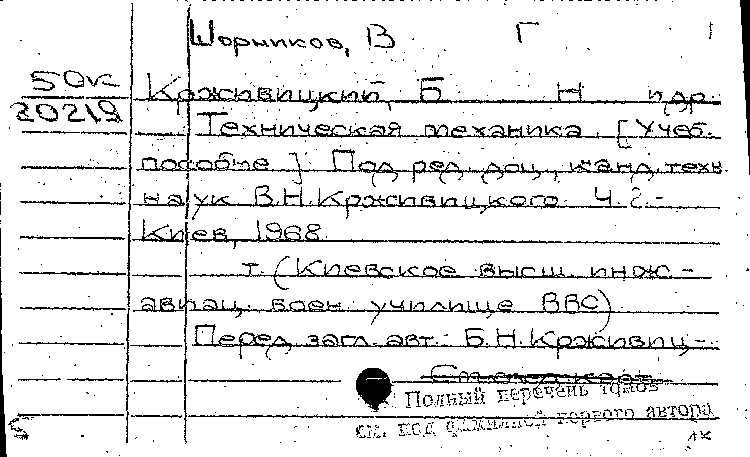 Шорников, В Г
50к Крживицкий, Б Н и др.
20219
Техническая механика. [Учеб.
пособие]. Под ред. доц., канд. техн
наук В.Н.Крживицкого. Ч.2.-
Киев, 1968.
т. (Киевское высш. инж-
авиац. воен. училище ВВС)
Перед загл. авт.: Б.Н.Крживиц-
См. след. карт.
Полный перечень томов
см. под фамилией первого автора